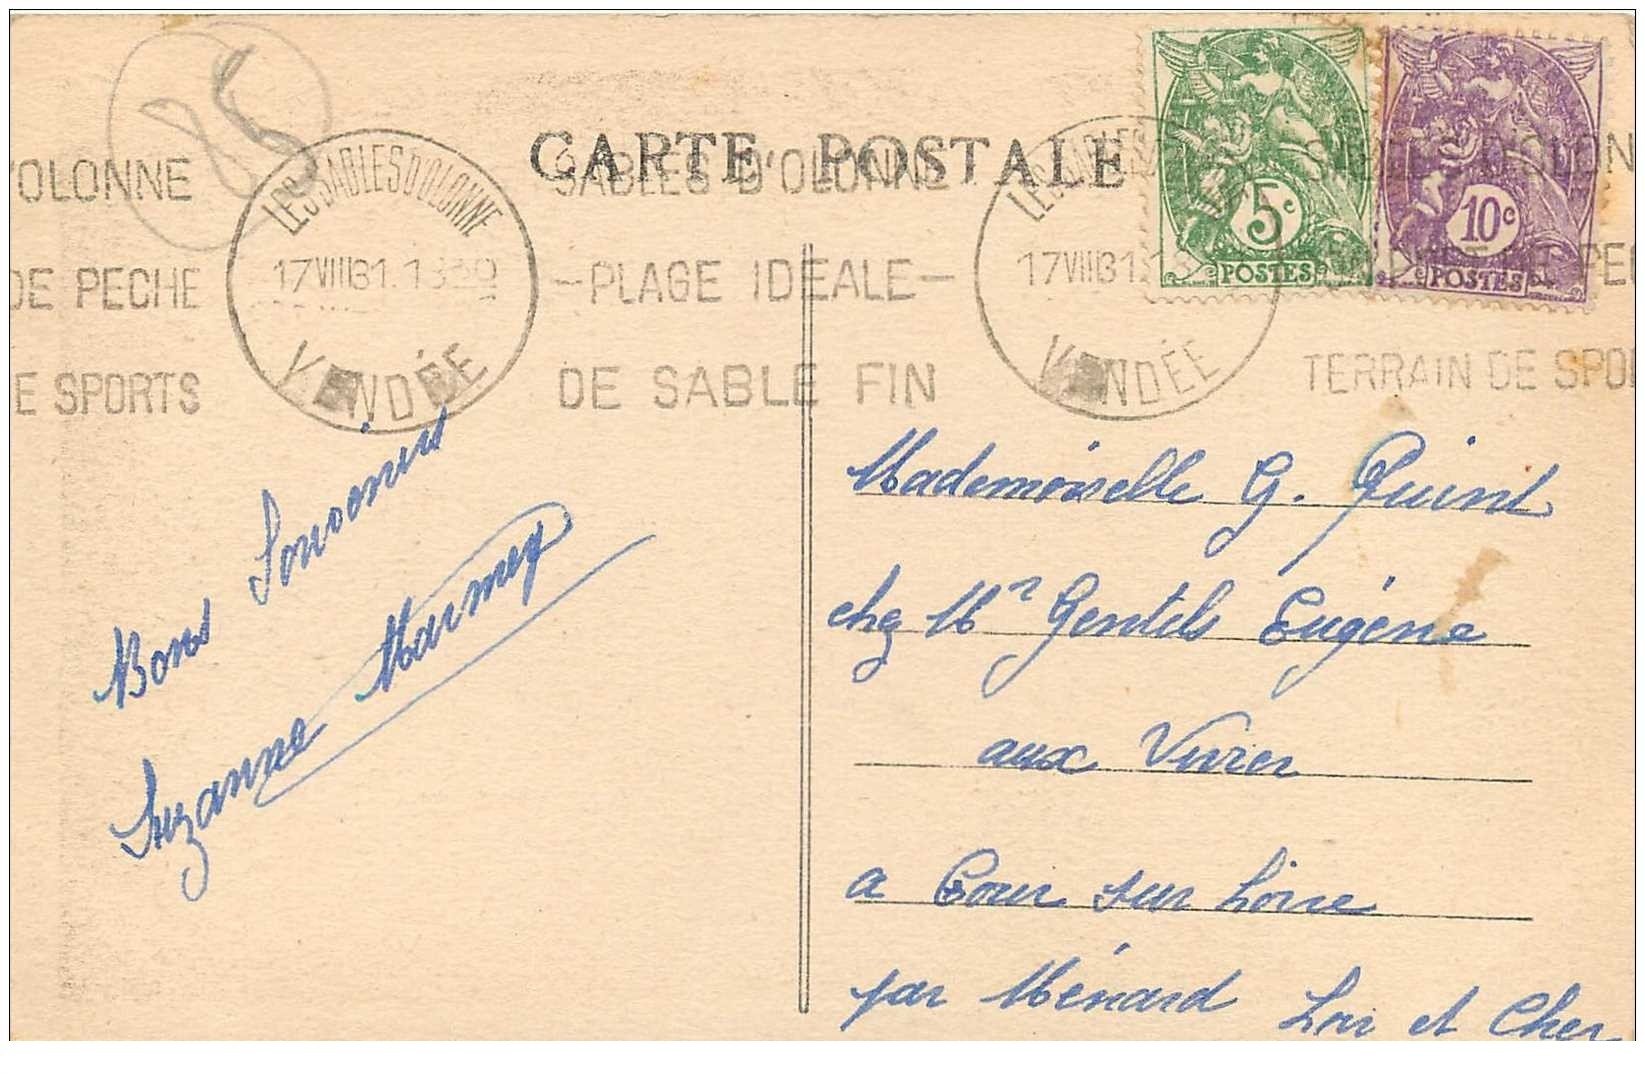 85
CARTE POSTALE
'OLONNE
DE PECHE
E SPORTS
LES SABLES D'OLONNE
17 VIII 31. 1330
VENDÉE
SABLES D'OLONNE
-PLAGE IDEALE-
DE SABLE FIN
LES SABLES
17 VIII 31. 13
VENDÉE
5c
POSTES
10c
POSTES
TERRAIN DE SPO
Bons Souvenirs
Suzanne Marmey
Mademoiselle G. Quint
chez Mr Gentils Eugène
aux Vivier
a Cour sur Loire
par Ménard Loir et Cher